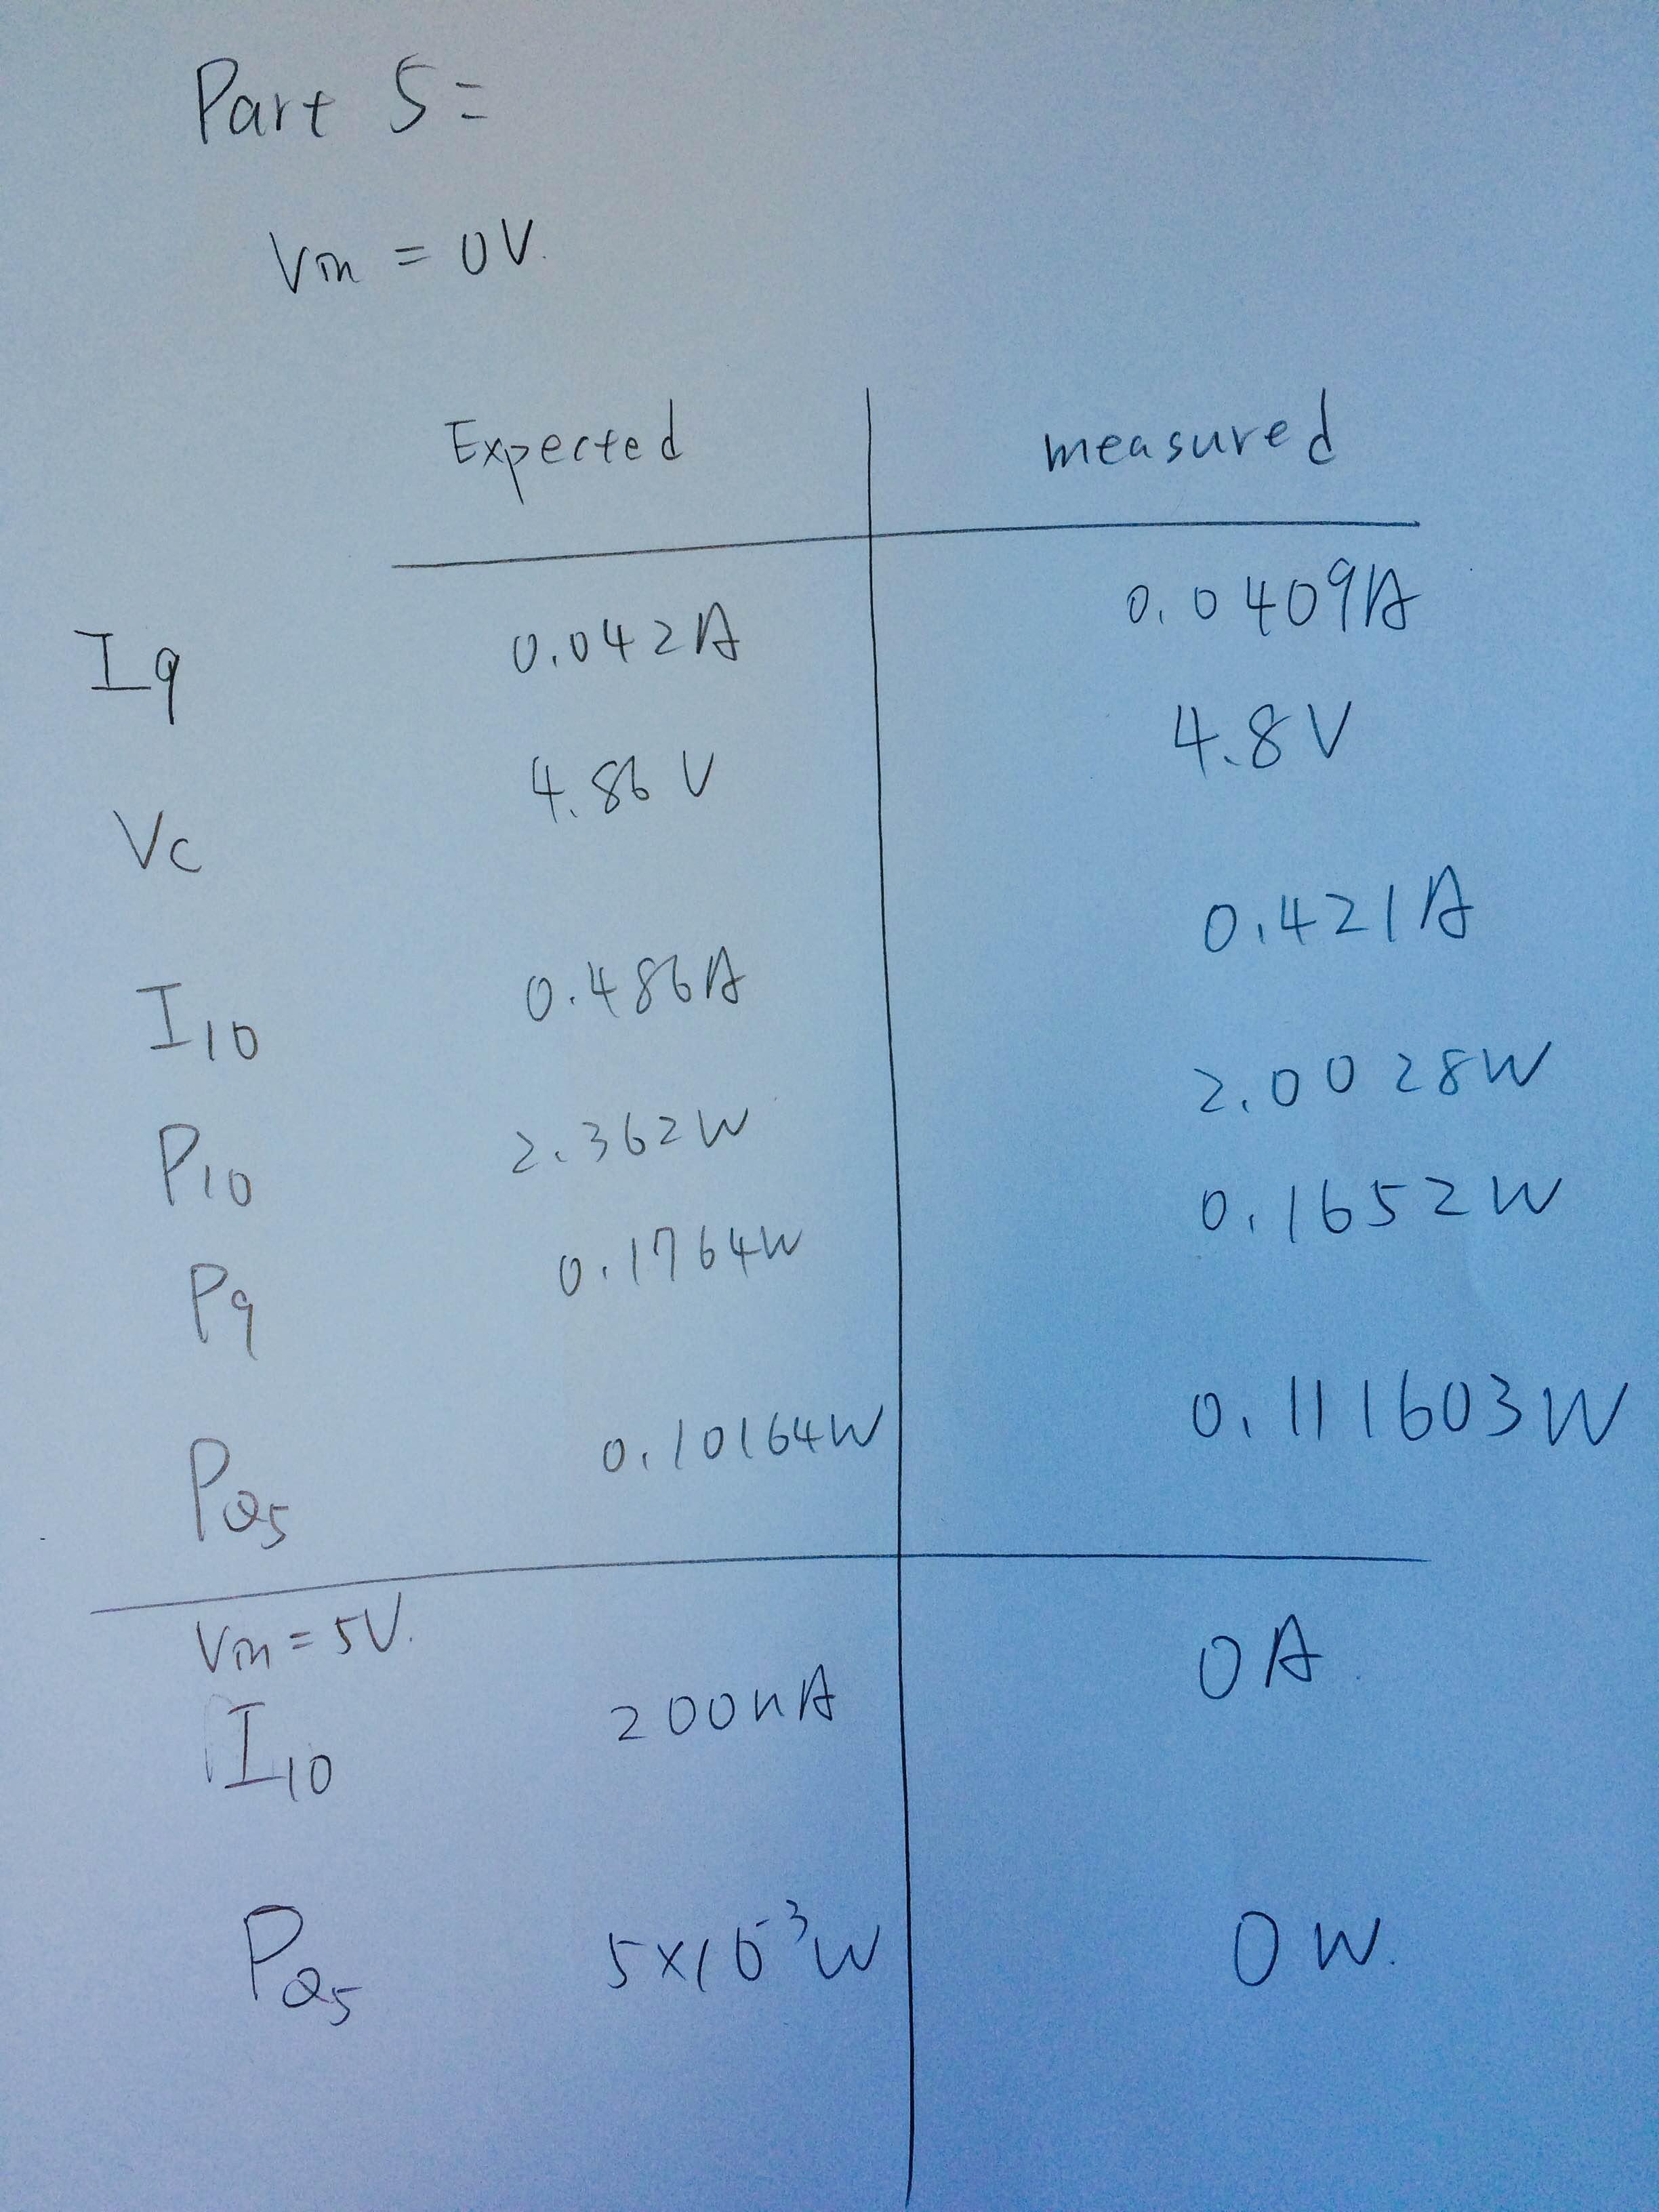 Part 5=
Vin = 0V.
Expected measured
I9 0.042A 0.0409A
Vc 4.86 V 4.8V
I10 0.486A 0.421A
P10 2.362W 2.0028W
P9 0.1764W 0.1652W
PQ5 0.10164W 0.111603W
Vin = 5V.
I10 200nA 0A.
PQ5 5×10⁻³W 0W.